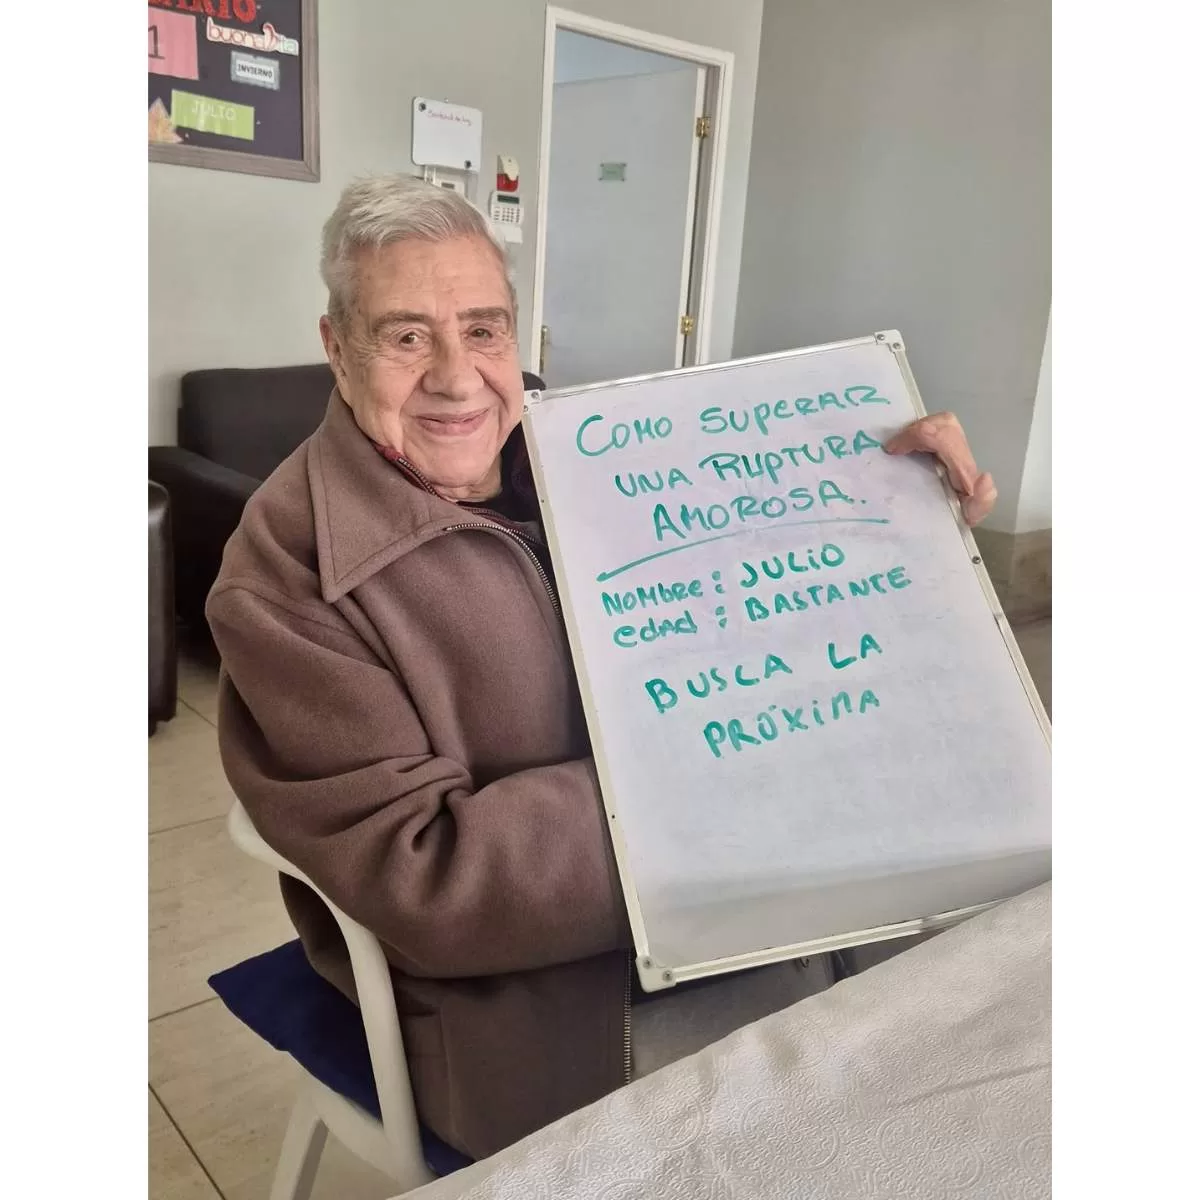 buona vita
1
INVIERNO
JULIO
COMO SUPERAR
UNA RUPTURA
AMOROSA.
NOMBRE: JULIO
EDAD: BASTANTE
BUSCA LA
PRÓXIMA